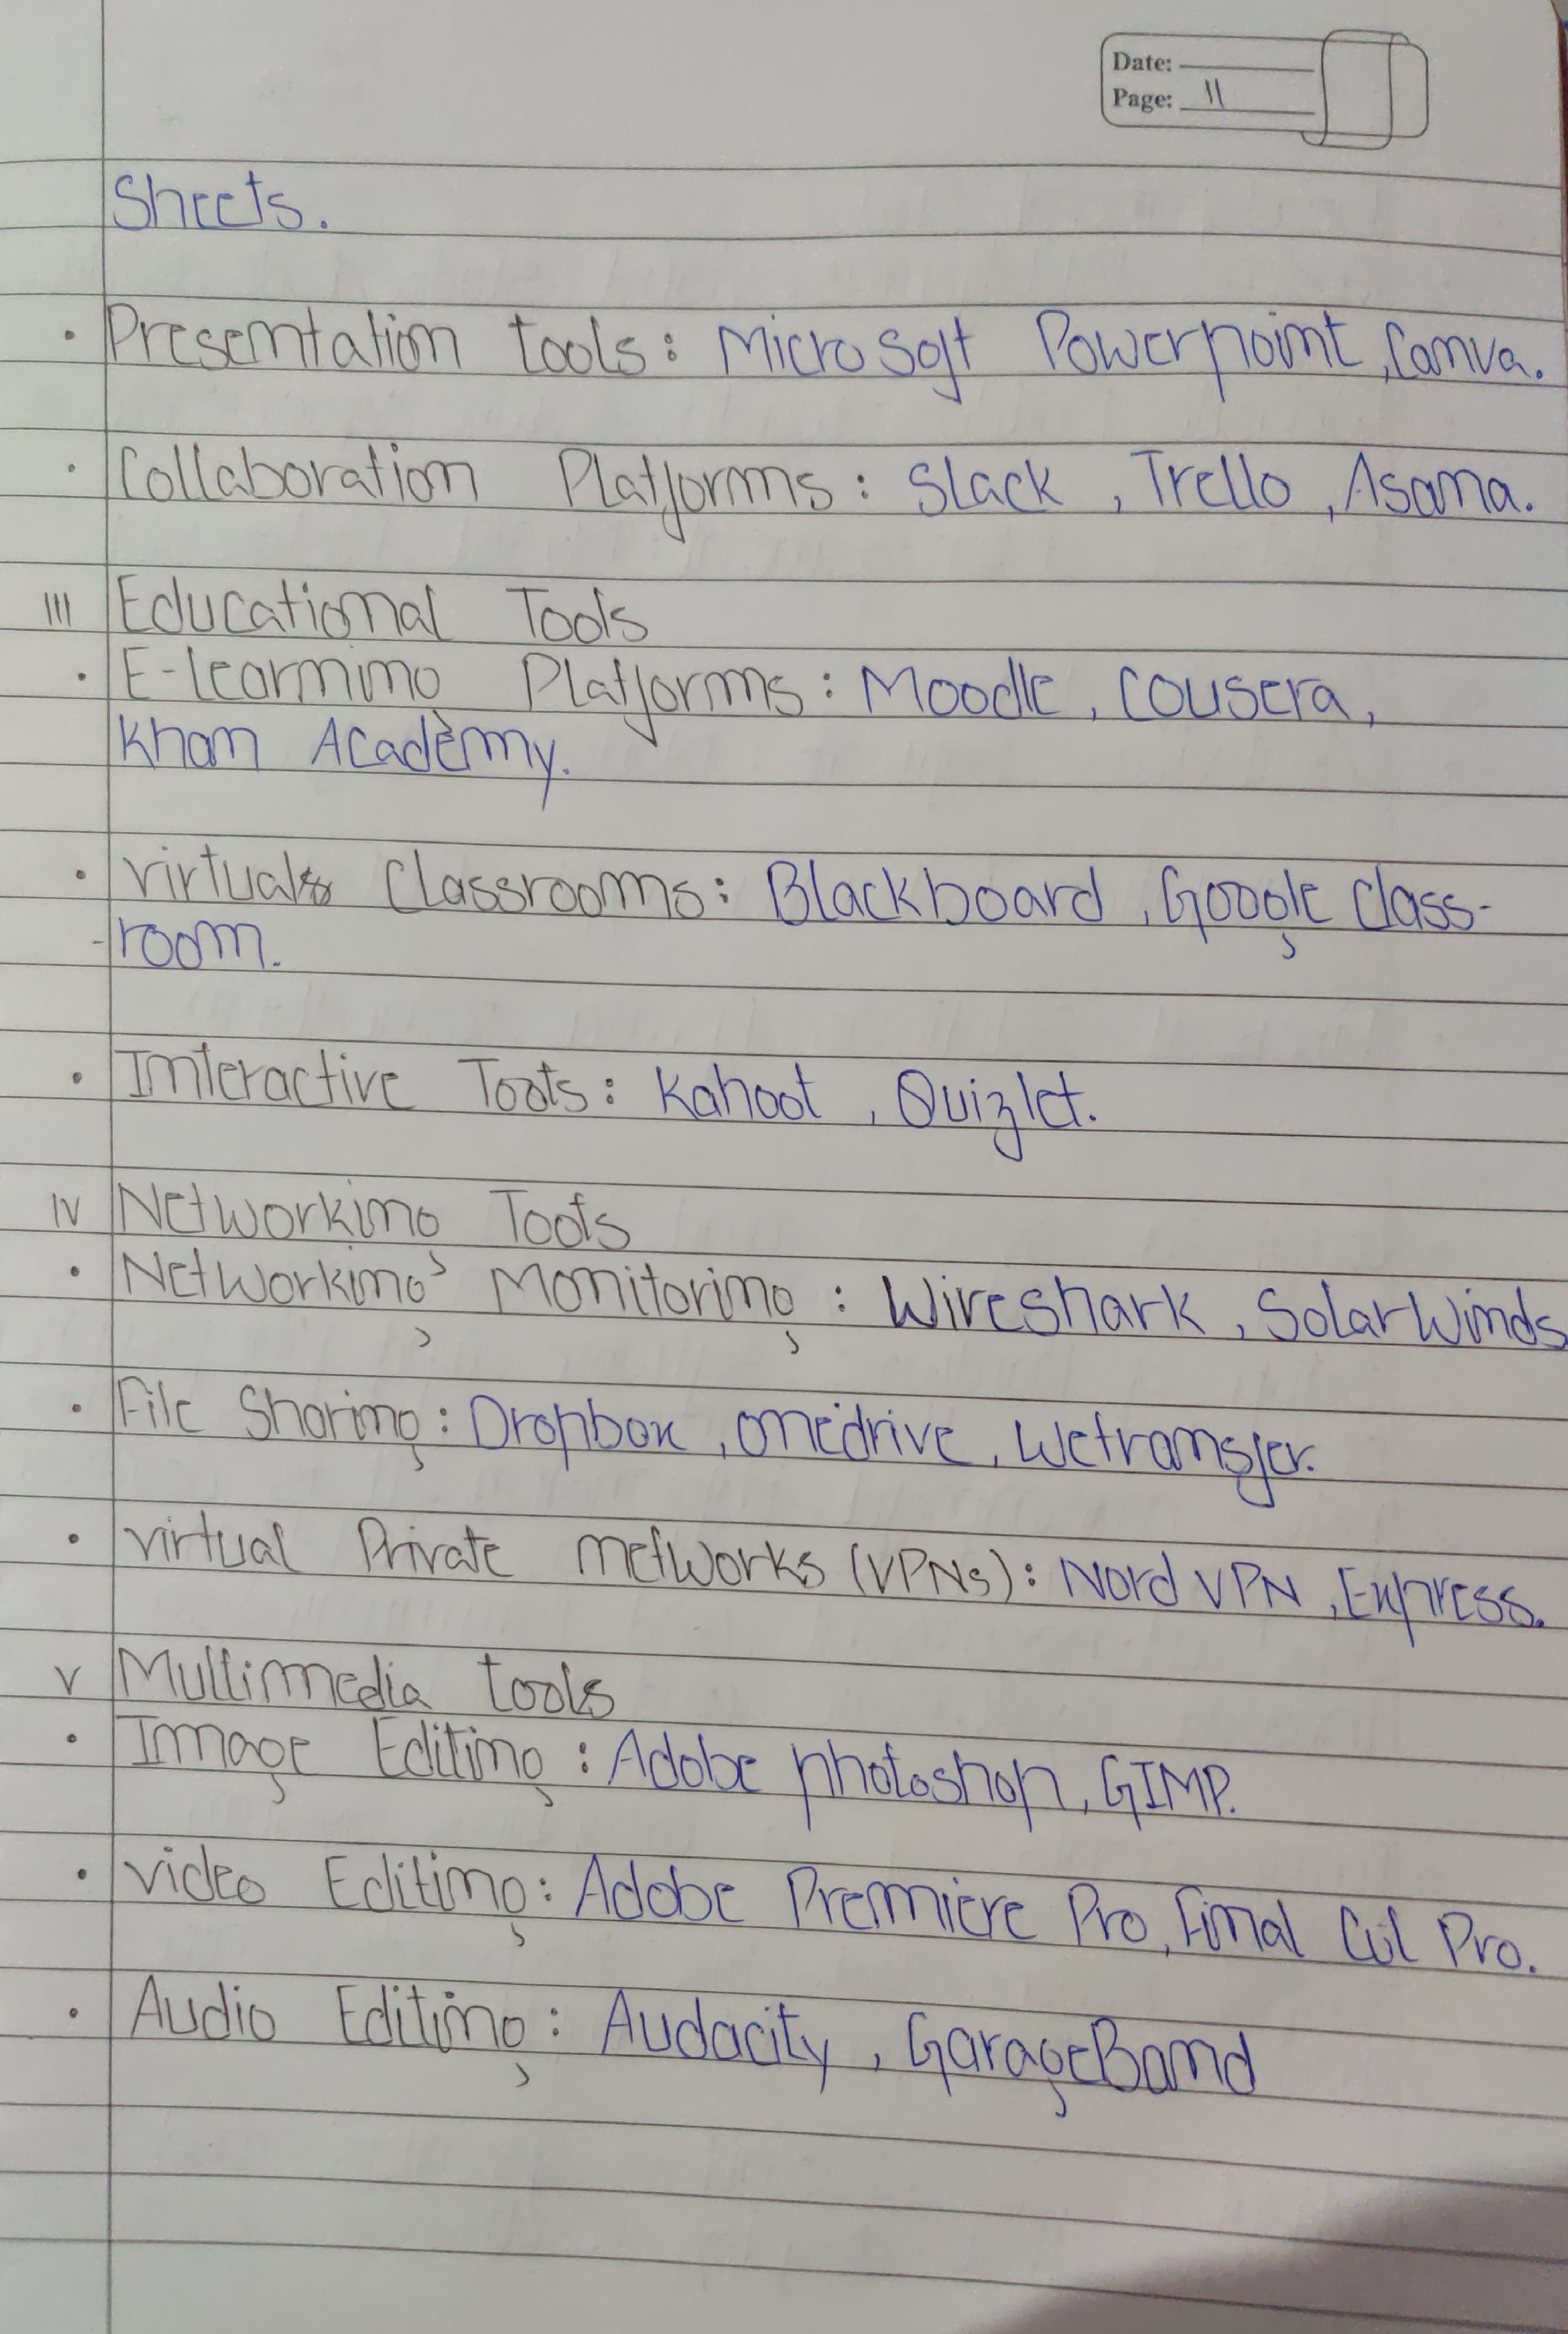 Date:
Page: 11
Sheets.
• Presentation tools: Microsoft Powerpoint, Canva.
• Collaboration Platforms: Slack, Trello, Asana.
III Educational Tools
• E-learning Platforms: Moodle, Cousera,
Khan Academy.
• Virtual Classrooms: Blackboard, Google Class-
-room.
• Interactive Tools: Kahoot, Quizlet.
IV Networking Tools
• Networking Monitoring: Wireshark, SolarWinds
• File Sharing: Dropbox, Onedrive, Wetransfer.
• Virtual Private networks (VPNs): Nord VPN, Express.
V Multimedia tools
• Image Editing: Adobe photoshop, GIMP.
• Video Editing: Adobe Premiere Pro, Final Cut Pro.
• Audio Editing: Audacity, GarageBand